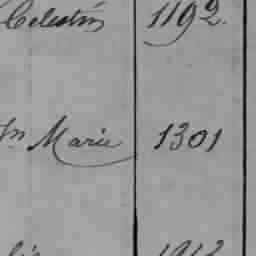 Celestin 1192.
Jn Marie 1301